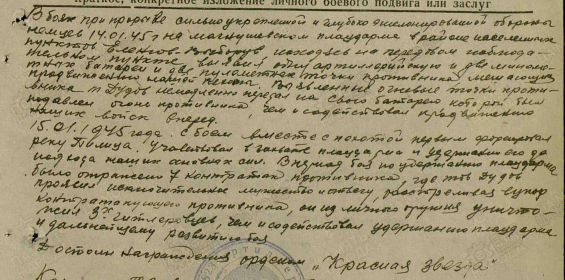 Краткое, конкретное изложение личного боевого подвига или заслуг
В боях при прорыве сильно укрепленной и глубоко эшелонированной обороны
немцев 14.01.45г на магнушевском плацдарме в районе населенных
пунктов Выборув, находясь на передовом наблюда-
тельном пункте выявил одну артиллерийскую и две миномет-
ных батареи и две пулеметных точки противника мешающих
продвижению нашей пехоты. Выявленные огневые точки проти-
вника т Дудов немедленно передал на свою батарею которой был
подавлен огонь противника, чем содействовал продвижению
наших войск вперед.
15.01.1945 года. с боем вместе с пехотой первым форсировал
реку Пилица. Участвовал в захвате плацдарма и удержании его до
подхода наших основных сил. В период боя по удержанию плацдарма
было отражено 7 контратак противника, где тов Дудов
проявил исключительное мужество и отвагу, расстреливая в упор
контратакующего противника, он из личного оружия уничто-
жил 3х гитлеровцев, чем и содействовал удержанию плацдарма
и дальнейшему развитию боя
Достоин награждения орденом „Красная звезда"